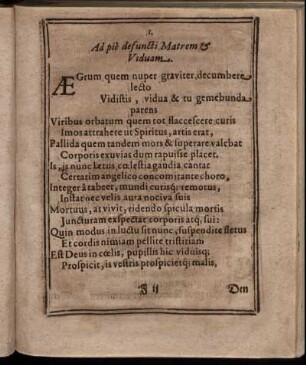 I.
Ad piè defuncti Matrem &
Viduam.
ÆGrum quem nuper graviter, decumbere
lecto
Vidistis, vidua & tu gemebunda
parens
Viribus orbatum quem tot flaccescere curis
Imos attrahere ut Spiritus, artis erat,
Pallida quem tandem mors & superare valebat
Corporis exuvias dum rapuisse placet.
Is, is nunc lætus cœlestia gaudia cantat
Certatim angelico concomitante choro,
Integer à tabe er, mundi curisq; remotus,
Instar nec velis aura nociva suis
Mortuus, at vivit, ridendo spicula mortis
Juncturam exspectat corporis atq; sui:
Quin modus in luctu sit nunc, suspendite fletus
Et cordis nimiam pellite tristitiam
Est Deus in cœlis, pupillis hic viduisq;
Prospicit, is vestris prospicietq; malis,
J ij Den